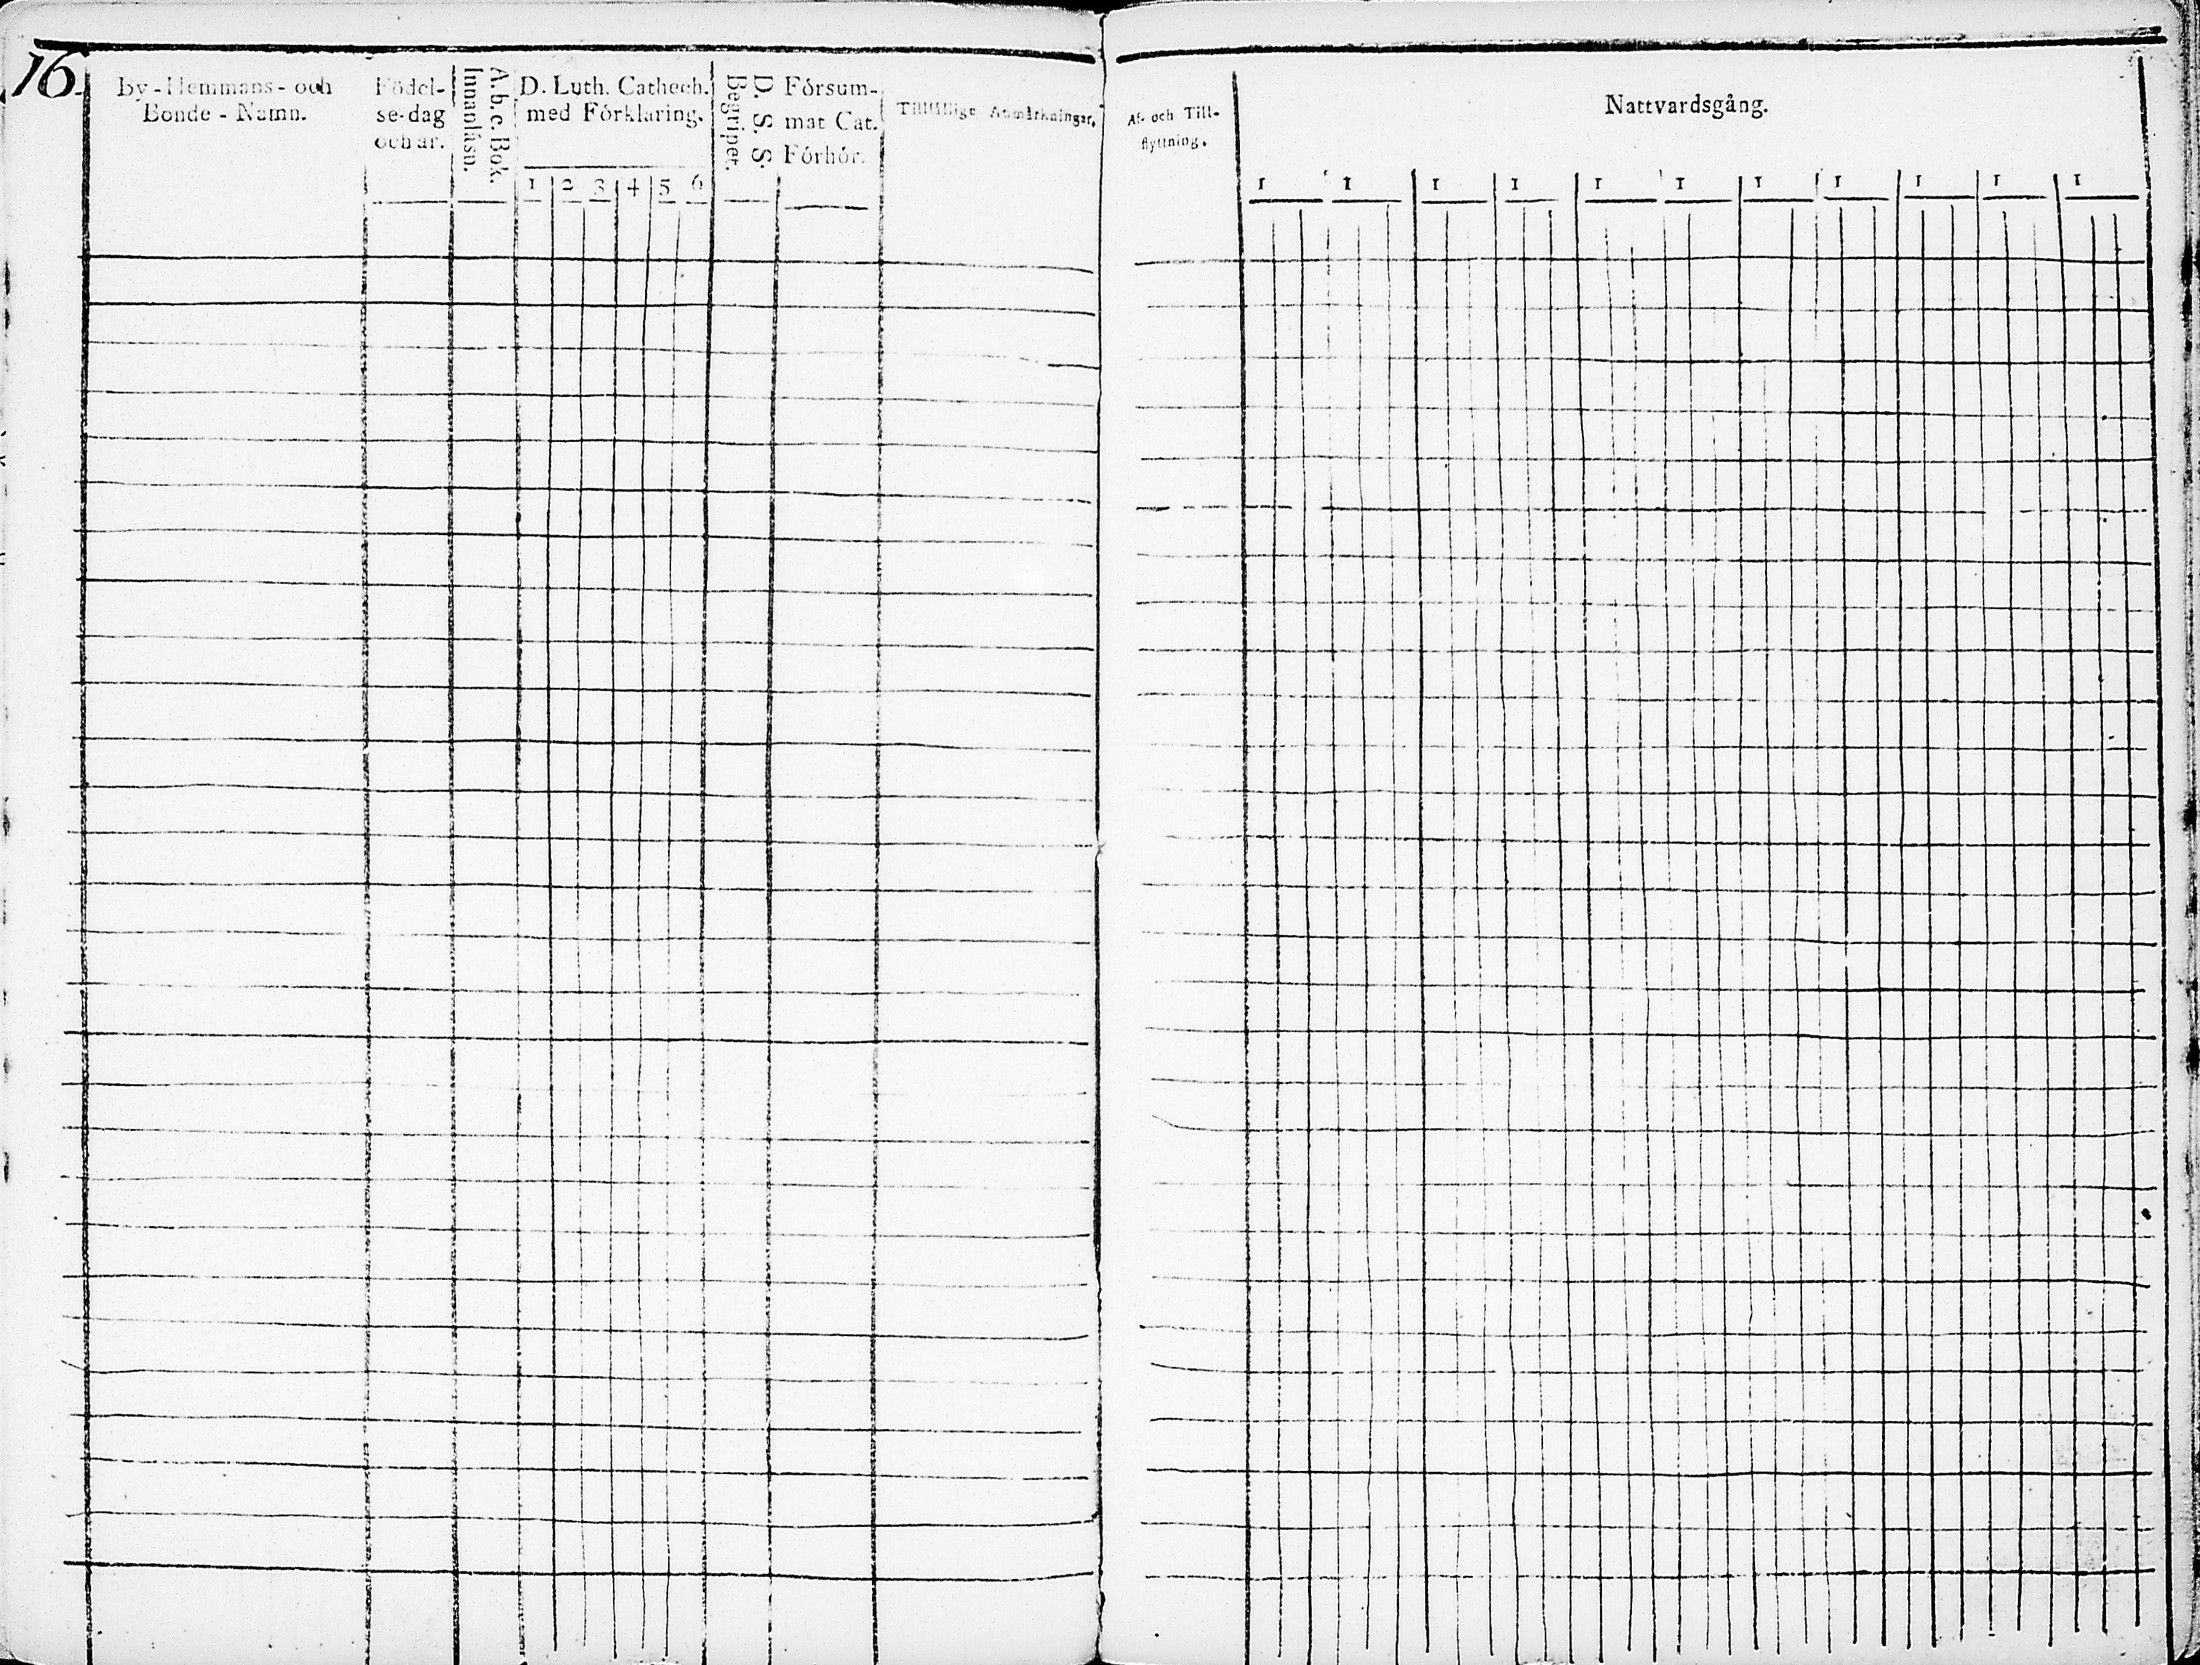 16.
By-Hemmans- och
Bonde - Namn.
Födel-
se-dag
och år.
A.b.c.Bok.
Innanläsn.
D. Luth. Cathech.
med Förklaring.
1 2 3 4 5 6
D. S. S.
Begriper.
Försum-
mat Cat.
Förhör.
Tillfällige Anmärkningar.
Af- och Till-
flyttning.
Nattvardsgång.
1 1 1 1 1 1 1 1 1 1 1